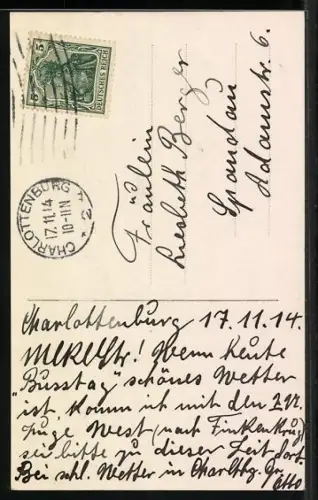 5 5
DEUTSCHES REICH
CHARLOTTENBURG 2
17.11.14
10-11N
Fräulein
Liesbeth Berger
Spandau
Adamstr. 6.
Charlottenburg 17.11.14.
Wenn heute
"Busstag" schönes Wetter
ist, komm ich mit den
Zuge West (nach Finkenkrug)
sei bitte zu dieser Zeit dort.
Bei schl. Wetter in Charlttbg. Gr.
Otto